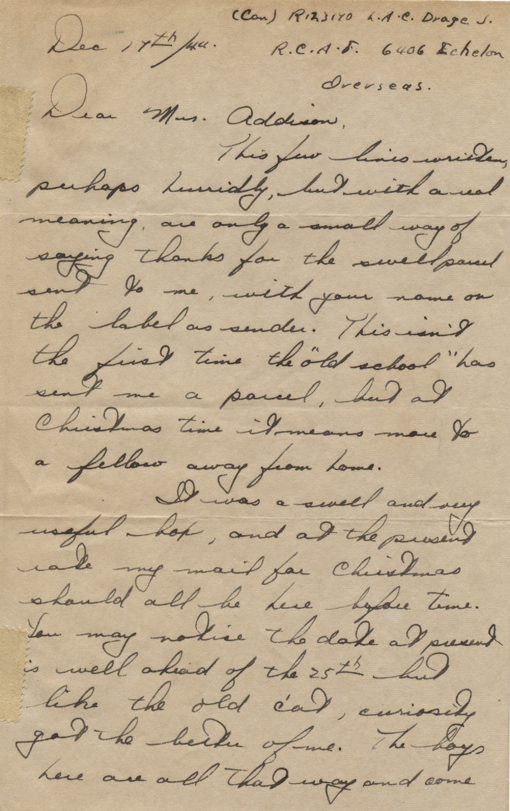 (Can) R123170 L.A.C. Drage J.
Dec 17th/44.
R.C.A.F. 6406 Echelon
Overseas.
Dear Mrs. Addison,
This few lines written,
perhaps hurridly, but with a real
meaning, are only a small way of
saying thanks for the swell parcel
sent to me, with your name on
the label as sender. This isn't
the first time the "old school" has
sent me a parcel, but at
Christmas time it means more to
a fellow away from home.
It was a swell and very
useful box, and at the present
rate my mail for Christmas
should all be here before time.
You may notise the date at present
is well ahead of the 25th but
like the old cat, curiosity
got the better of me. The boys
here are all that way and come